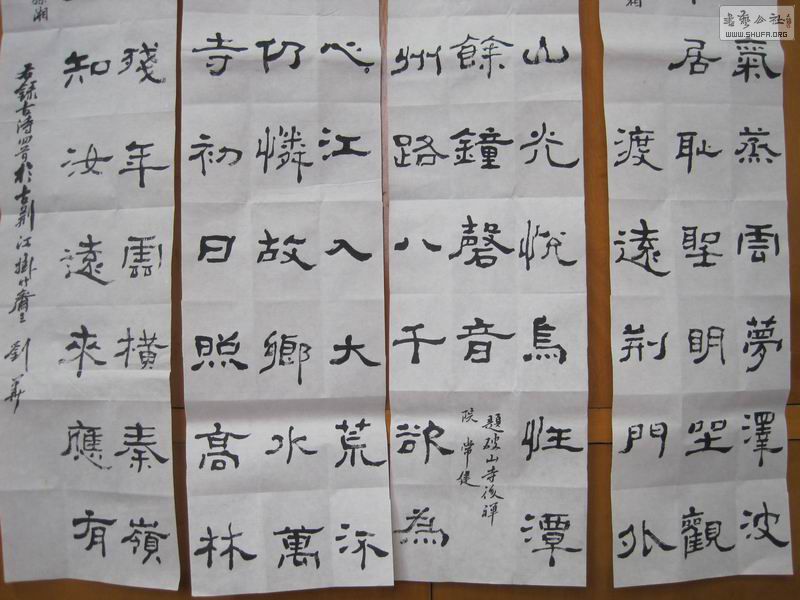 書藝公社
WWW.SHUFA.ORG
氣蒸雲夢澤波
居恥聖明坐觀
渡遠荊門外
山光悅鳥性潭
餘鐘磬音
題破山寺後禪
院 常建
州路八千欲為
心江入大荒流
仍憐故鄉水萬
寺初日照高林
殘年雲橫秦嶺
孫湘
知汝遠來應有
右錄古詩四首於古荊江掛竹齋 劉華